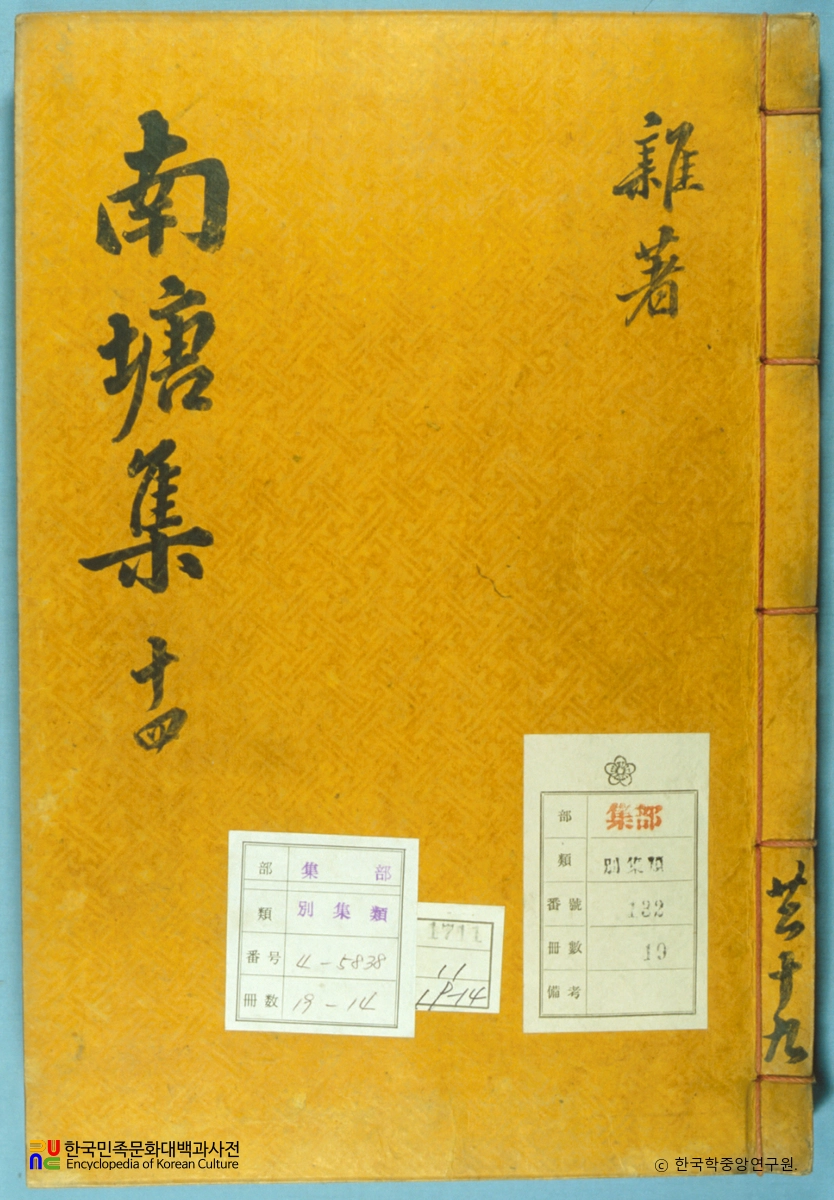 雜著
南塘集 十四
共十九
部 集部
類 別集類
番号 4-5838
冊数 19-14
1711
11
部 集部
類 別集類
番號 132
冊數 19
備考
한국민족문화대백과사전
Encyclopedia of Korean Culture
ⓒ 한국학중앙연구원.